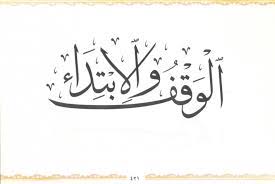 الْوَقْفُ وَالِابْتِدَاء
٤٣١